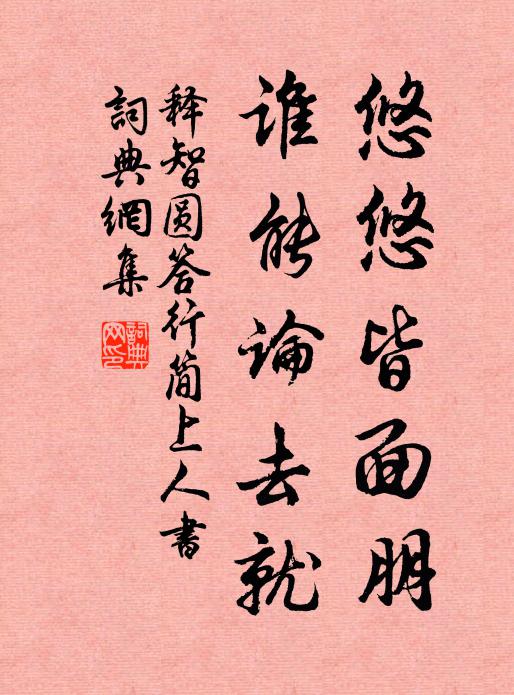 悠悠皆面朋
谁能論去就
释智圆答行简上人書
詞典網集
詞典網印